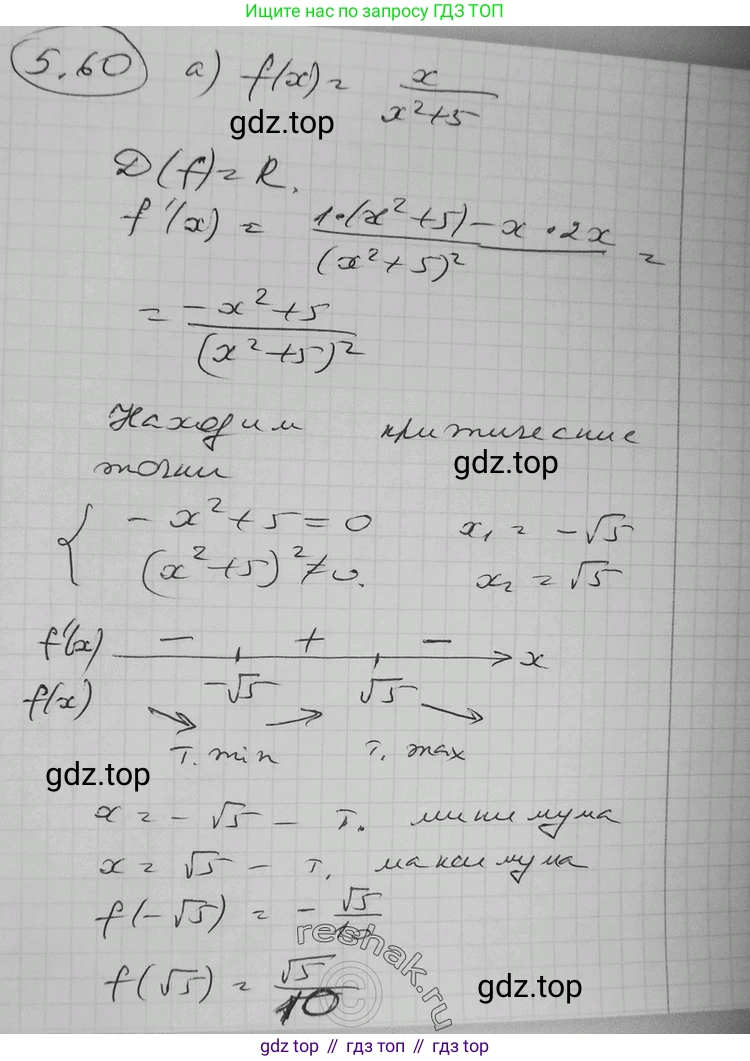 Ищите нас по запросу ГДЗ ТОП
5.60 а) f(x) = x / (x²+5)
gdz.top
D(f) = R.
f'(x) = (1·(x²+5) - x·2x) / (x²+5)² =
= (-x²+5) / (x²+5)²
Находим критические
точки
gdz.top
{ -x²+5 = 0 x₁ = -√5
(x²+5)² ≠ 0. x₂ = √5
f'(x) — + — x
-√5 √5
f(x)
т. min т. max
gdz.top
x = -√5 — т. минимума
x = √5 — т. максимума
f(-√5) = - √5 / 10
reshak.ru
f(√5) = √5 / 10
©
gdz.top
gdz.top // гдз топ // gdz.top